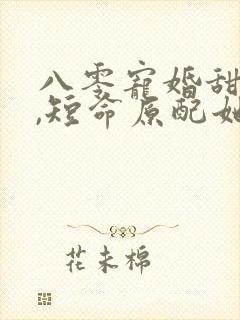 八零宠婚甜
,短命原配她
花未棉